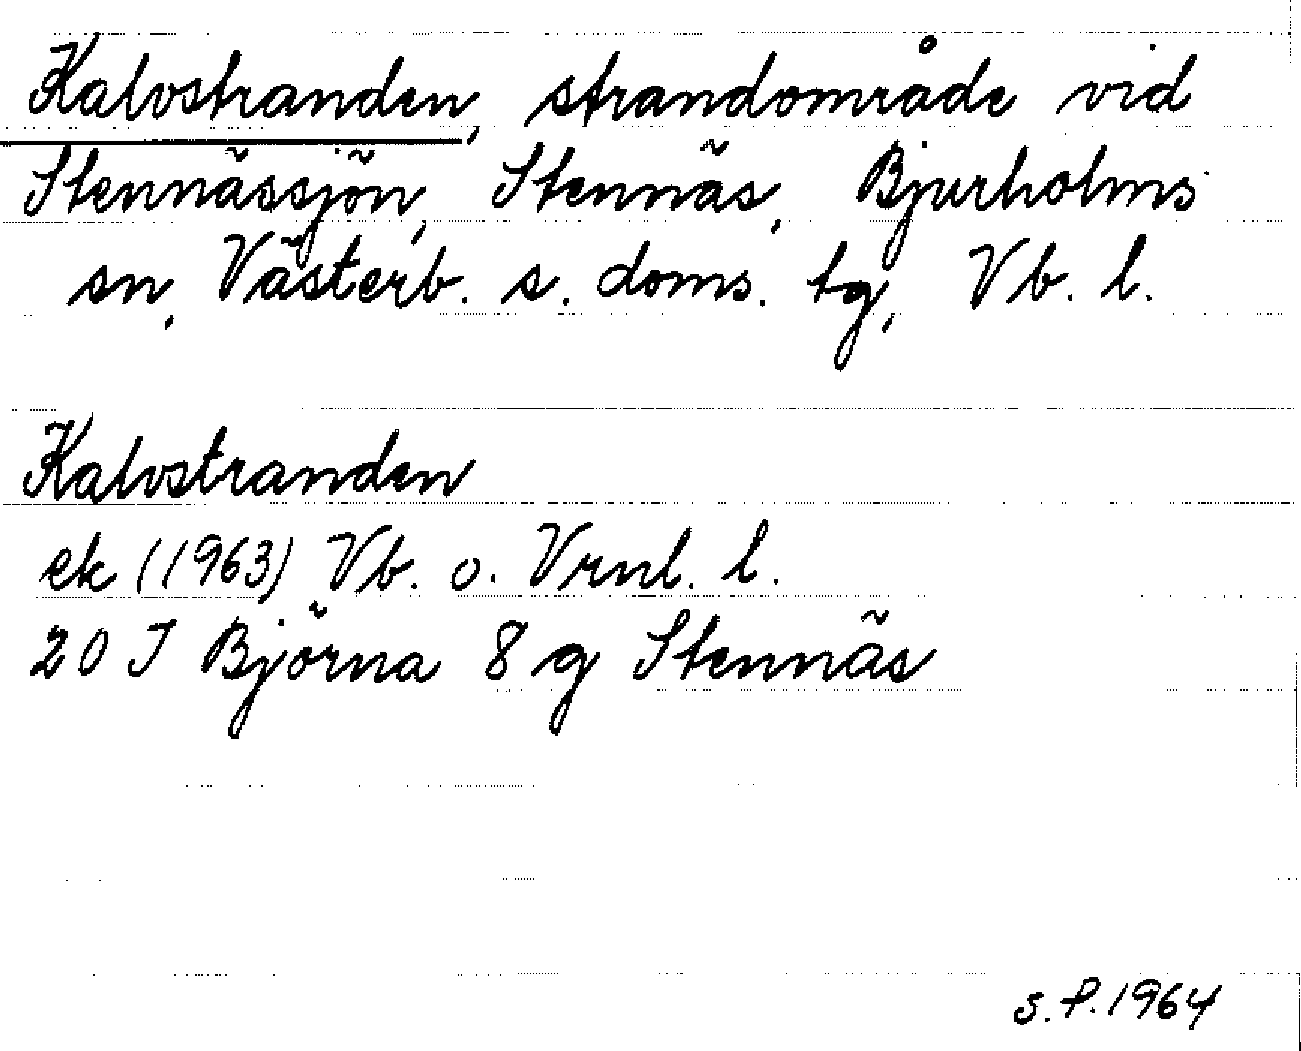 Kalvstranden, strandområde vid
Stennässjön, Stennäs, Bjurholms
sn, Västerb. s. doms. tg, Vb. l.
Kalvstranden
ek (1963) Vb. o. Vrnl. l.
20 J Björna 8 g Stennäs
S.P.1964